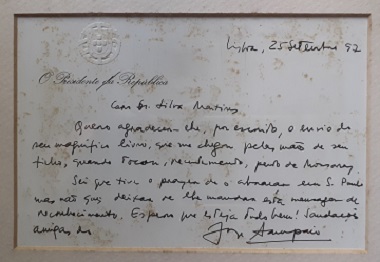 Lisboa, 25 Setembro 97
O Presidente da República
Caro Dr. Silva Martins
Quero agradecer-lhe, por escrito, o envio do
seu magnífico livro, que me chegou pelas mãos de seu
filho, quando recentemente, perto de
Sei que tive o prazer de o abraçar em S. Paulo
mas não quis deixar de lhe mandar esta mensagem de
reconhecimento. Espero que esteja tudo bem! Saudações
amigas do Jorge Sampaio